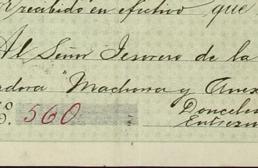 recibido en efectivo que
Al Señor Tesorero de la
dora "Machorra y Anex
$ 560
Donceles
Entresue